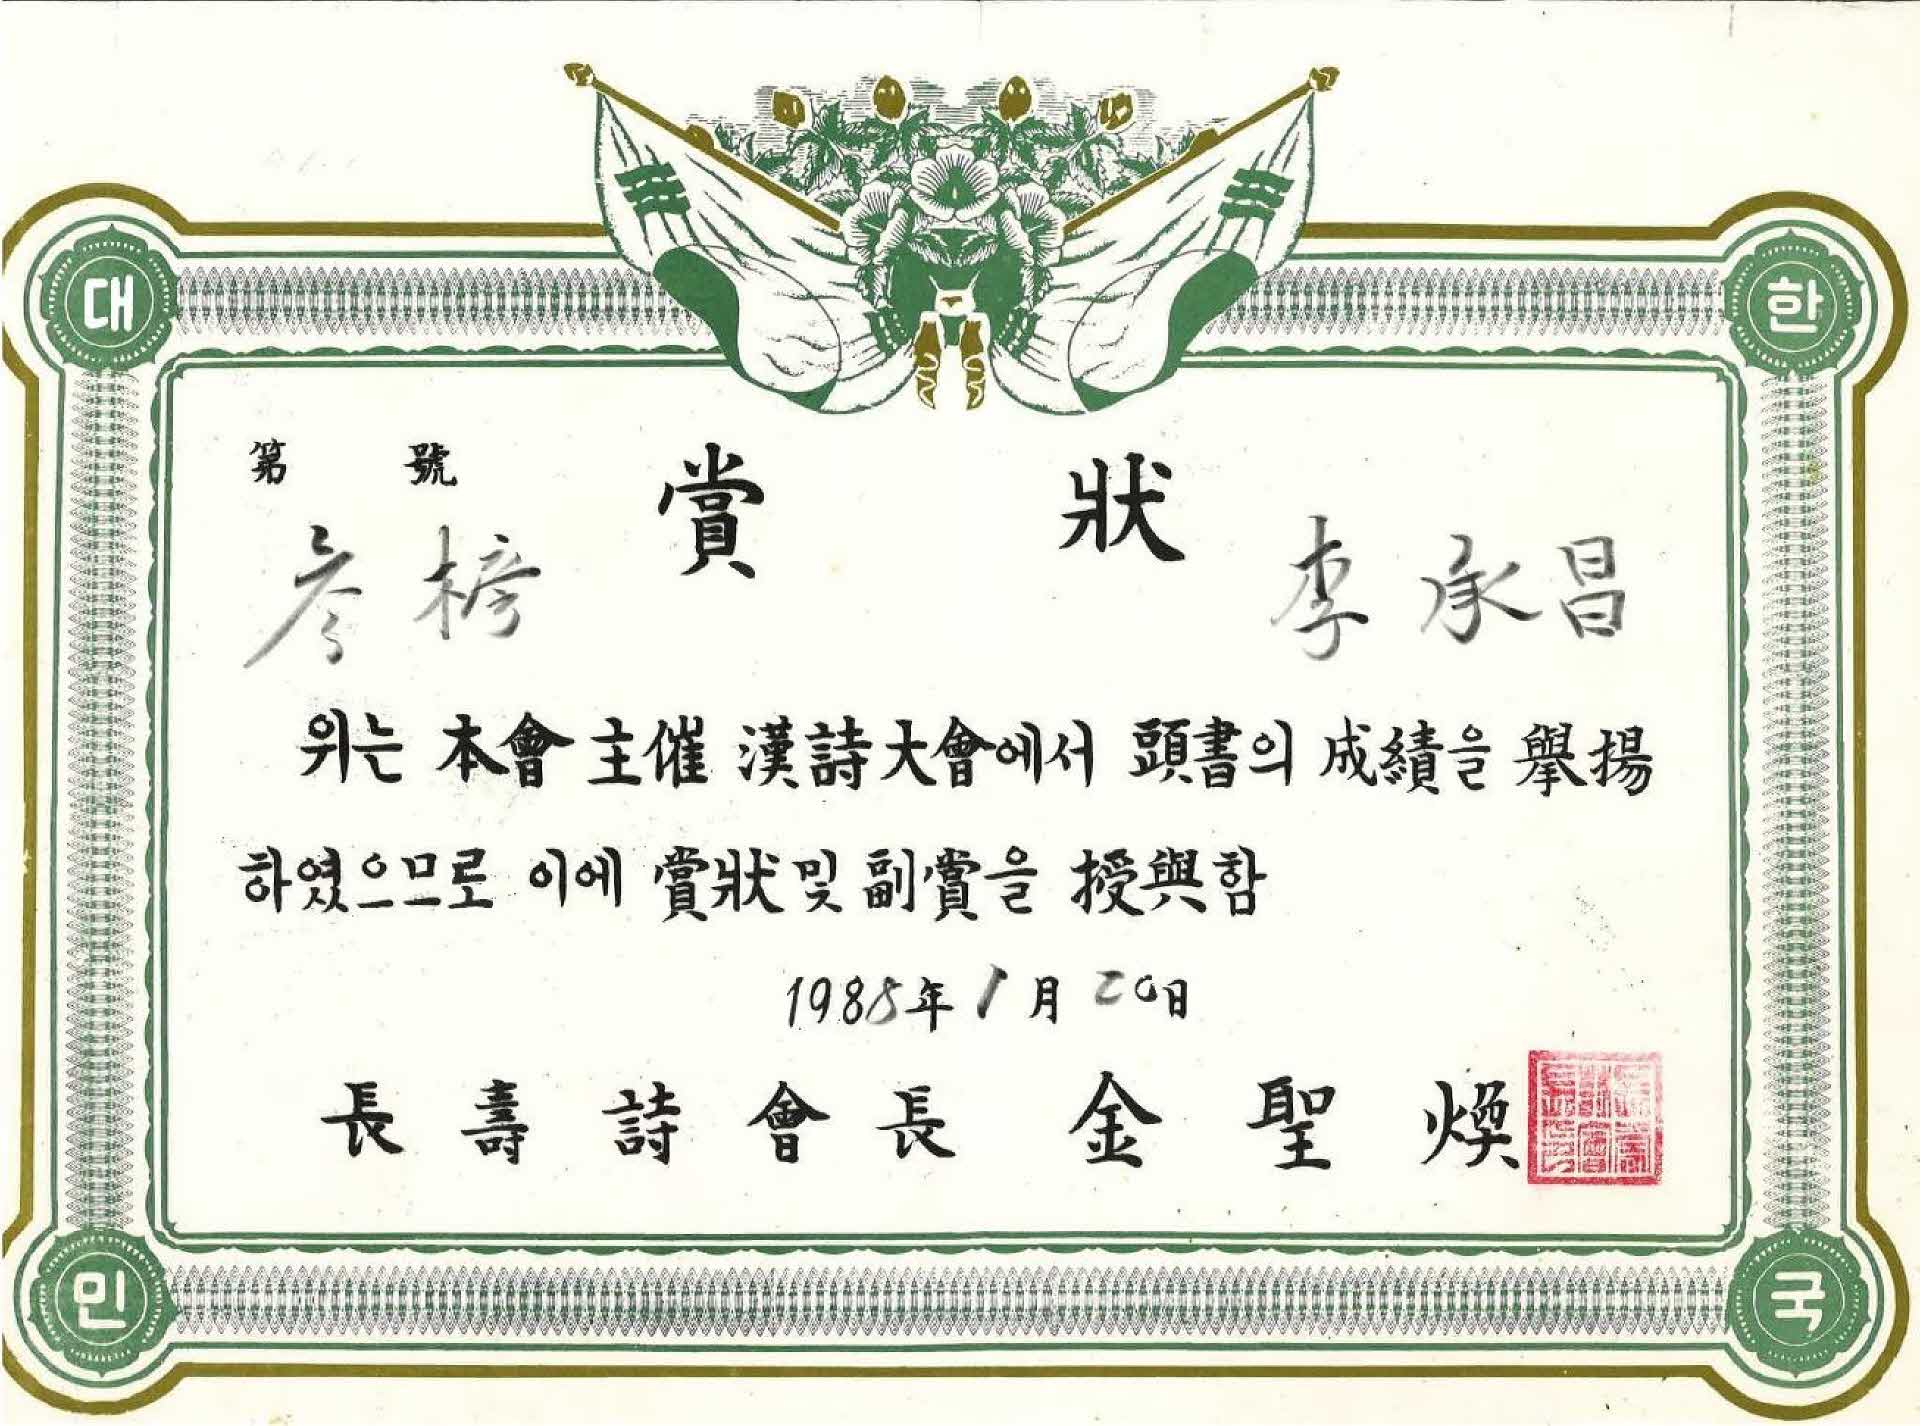 대 한
第 號
賞 狀
參 榜 李 承 昌
위는 本會 主催 漢詩大會에서 頭書의 成績을 擧揚
하였으므로 이에 賞狀 및 副賞을 授與함
1988年 1月 20日
長 壽 詩 會 長 金 聖 煥
민 국